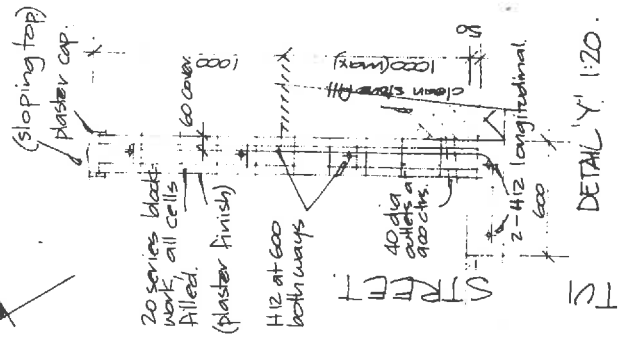 (sloping top)
plaster cap.
20 series block
work, all cells
filled.
(plaster finish)
60 cover.
1000
H12 at 600
both ways
1000 (max)
clean stone fill
40 dia
outlets @
900 ctrs.
2-H12 longitudinal.
600
STREET
DETAIL 'Y' 1:20.